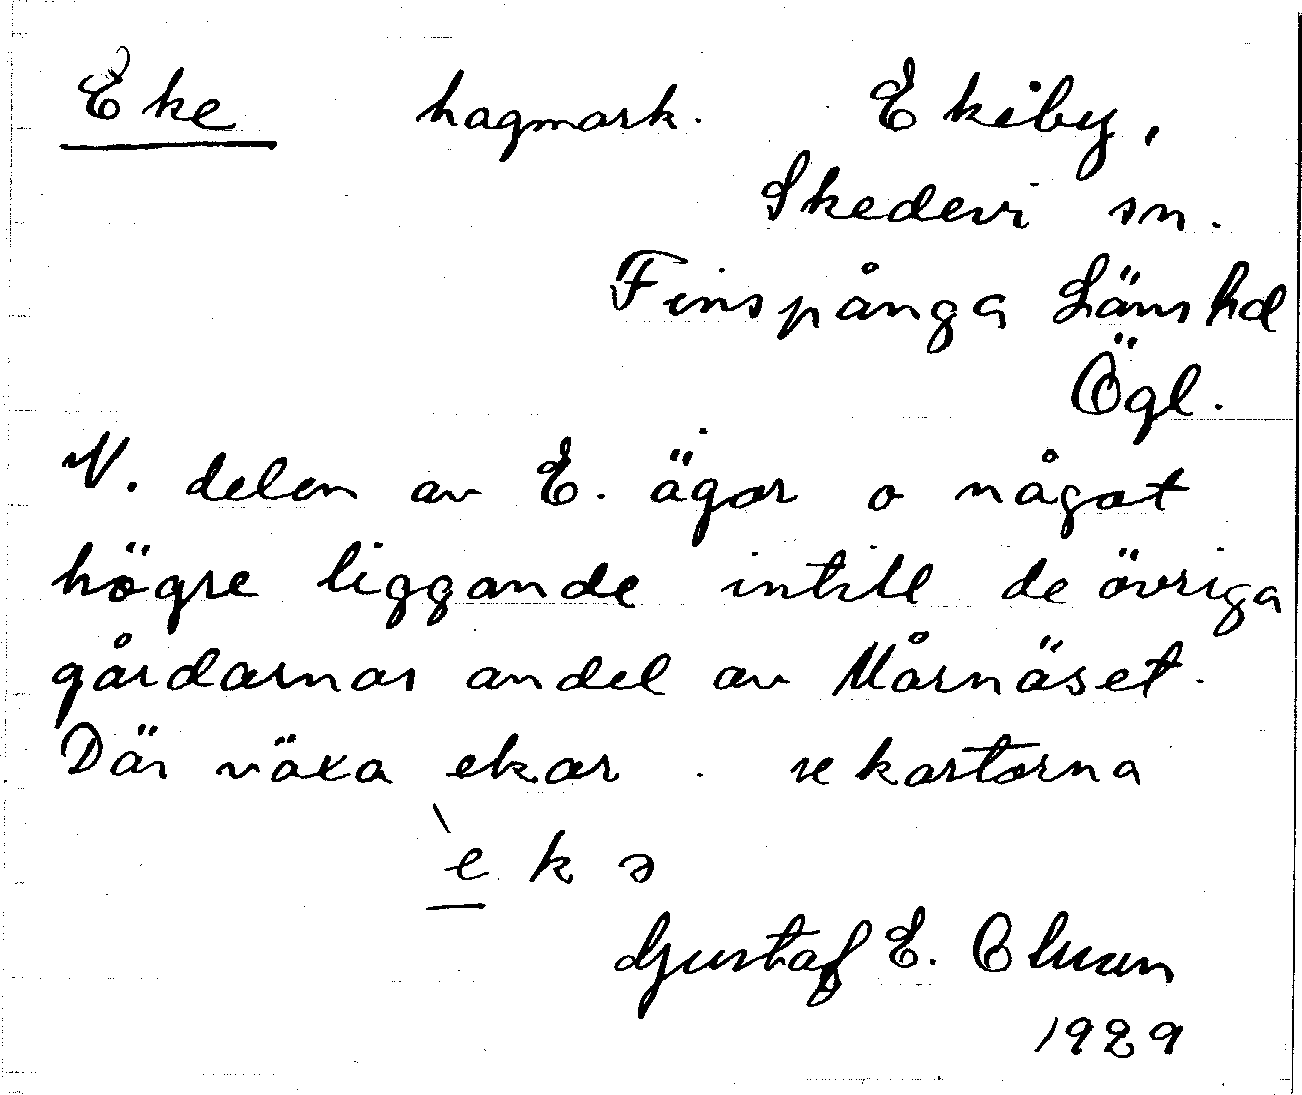 Eke hagmark. Ekeby,
Skedevi sn.
Finspånga Läns hd
Ögl.
N. delen av E. ägor o något
högre liggande intill de övriga
gårdarnas andel av Mårnäset.
Där växa ekar. se kartorna
èkə
Gustaf E. Olsson
1929